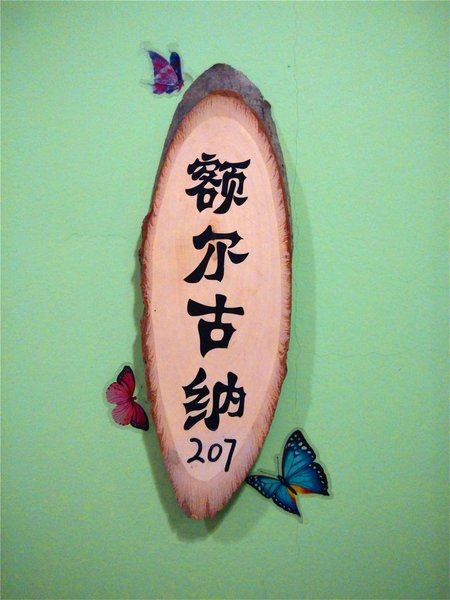 额尔古纳
207